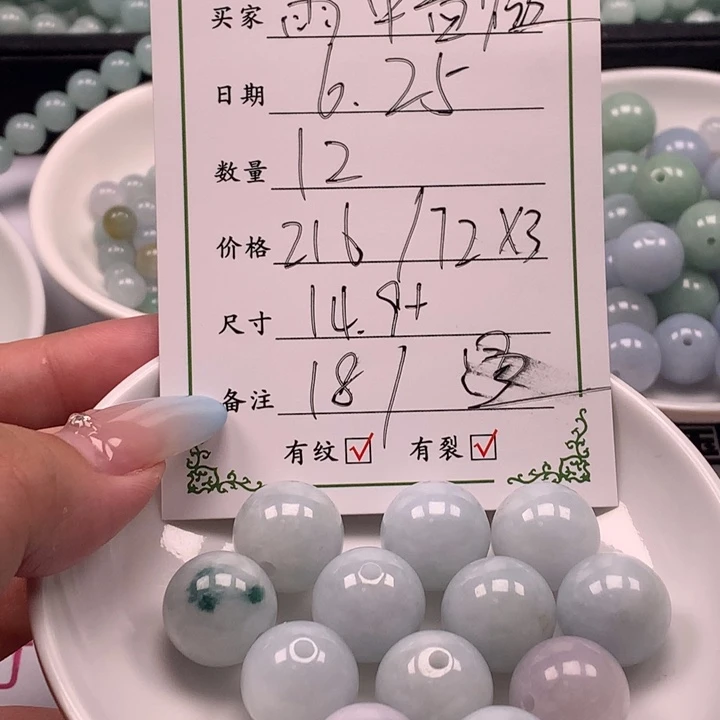 买家 雨
日期 6.25
数量 12
价格 216 / 72 X3
尺寸 14.9+
备注 18 /
有纹 ☑ 有裂 ☑